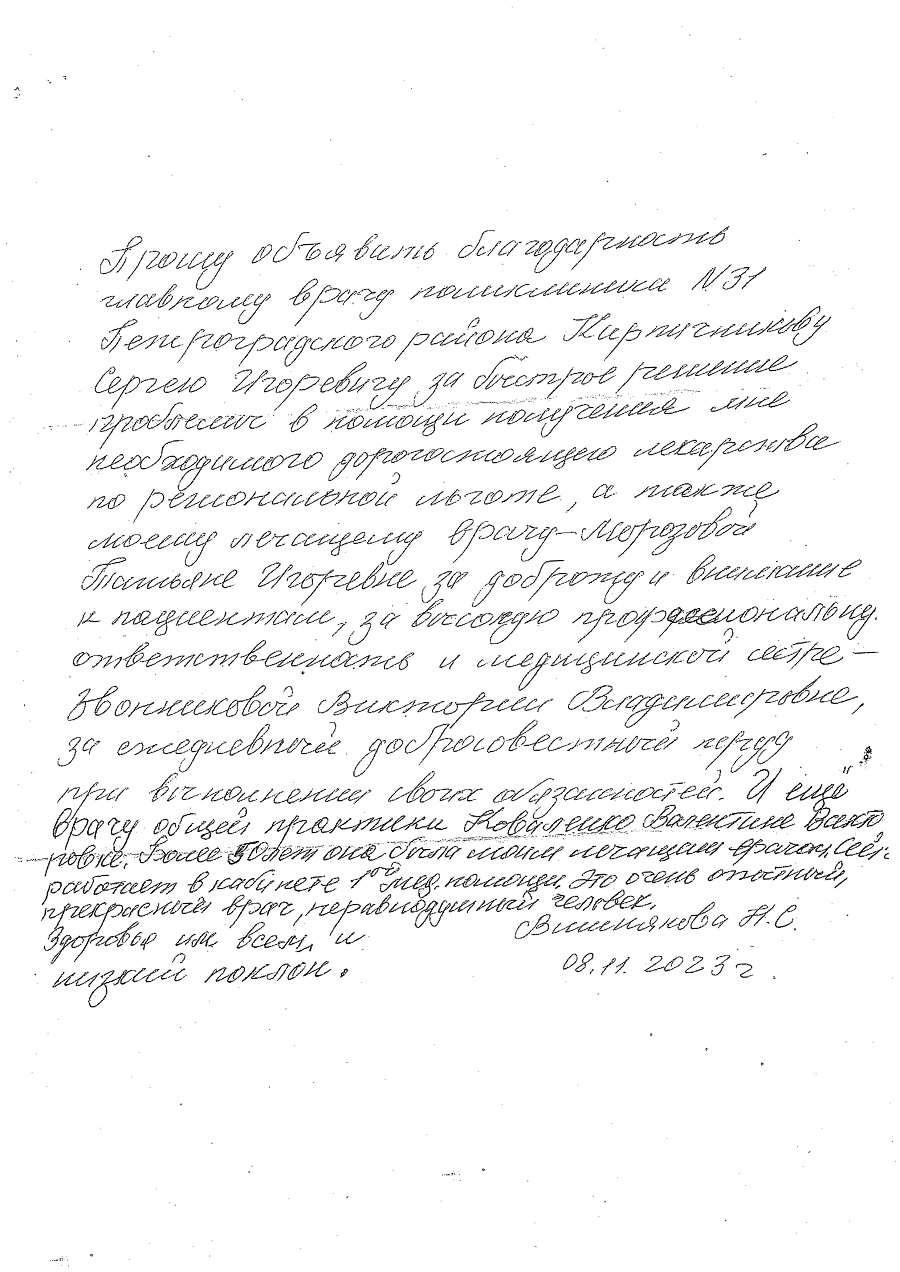 Прошу объявить благодарность
главному врачу поликлиники N 31
Петроградского района Кирпичникову
Сергею Игоревичу за быстрое решение
проблемы в помощи получения мне
необходимого дорогостоящего лекарства
по региональной льготе, а также
моему лечащему врачу – Морозовой
Татьяне Игоревне за доброту и внимание
к пациентам, за высокую профессиональну.
ответственность и медицинской сестре –
Звонниковой Виктории Владимировне,
за ежедневный добросовестный труд
при выполнении своих обязанностей. И ещё
врачу общей практики Коваленко Валентине Викто
ровне. Более 50 лет она была моим лечащим врачом. Сей
работает в кабинете 1ой мед. помощи. Это очень опытный,
прекрасный врач, неравнодушный человек.
Здоровья им всем и
низкий поклон.
Вишнякова Н.С.
08.11.2023 г.